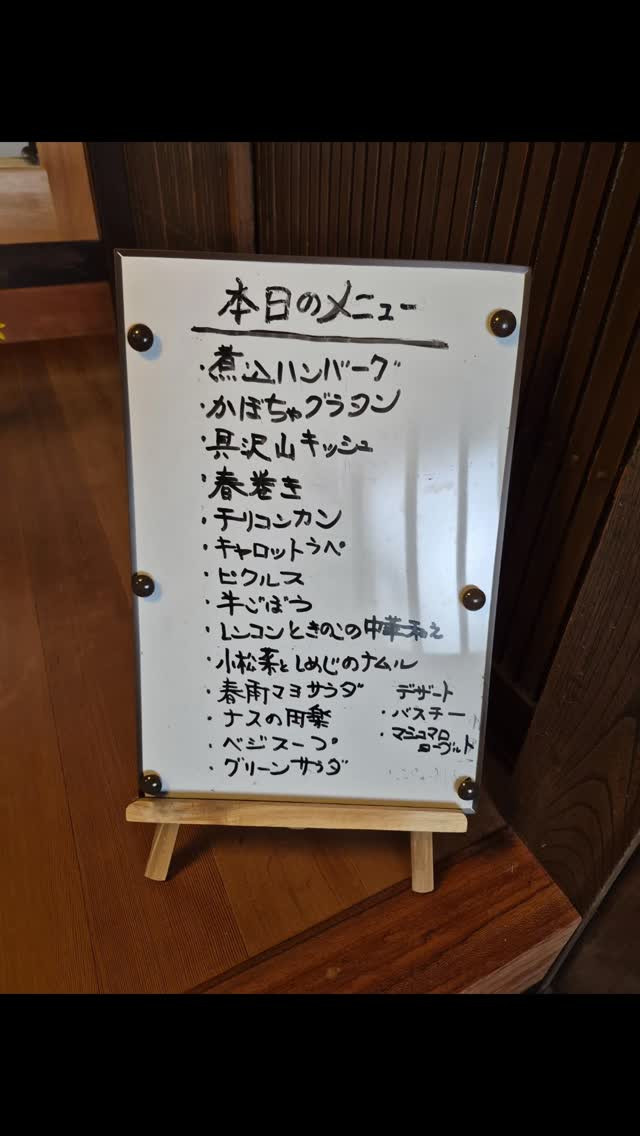 本日のメニュー
・煮込ハンバーグ
・かぼちゃグラタン
・具沢山キッシュ
・春巻き
・チリコンカン
・キャロットラペ
・ピクルス
・牛ごぼう
・レンコンときのこの中華和え
・小松菜としめじのナムル
・春雨マヨサラダ
・ナスの田楽
・ベジスープ
・グリーンサラダ
デザート
・バスチー
・マシュマロ
ヨーグルト